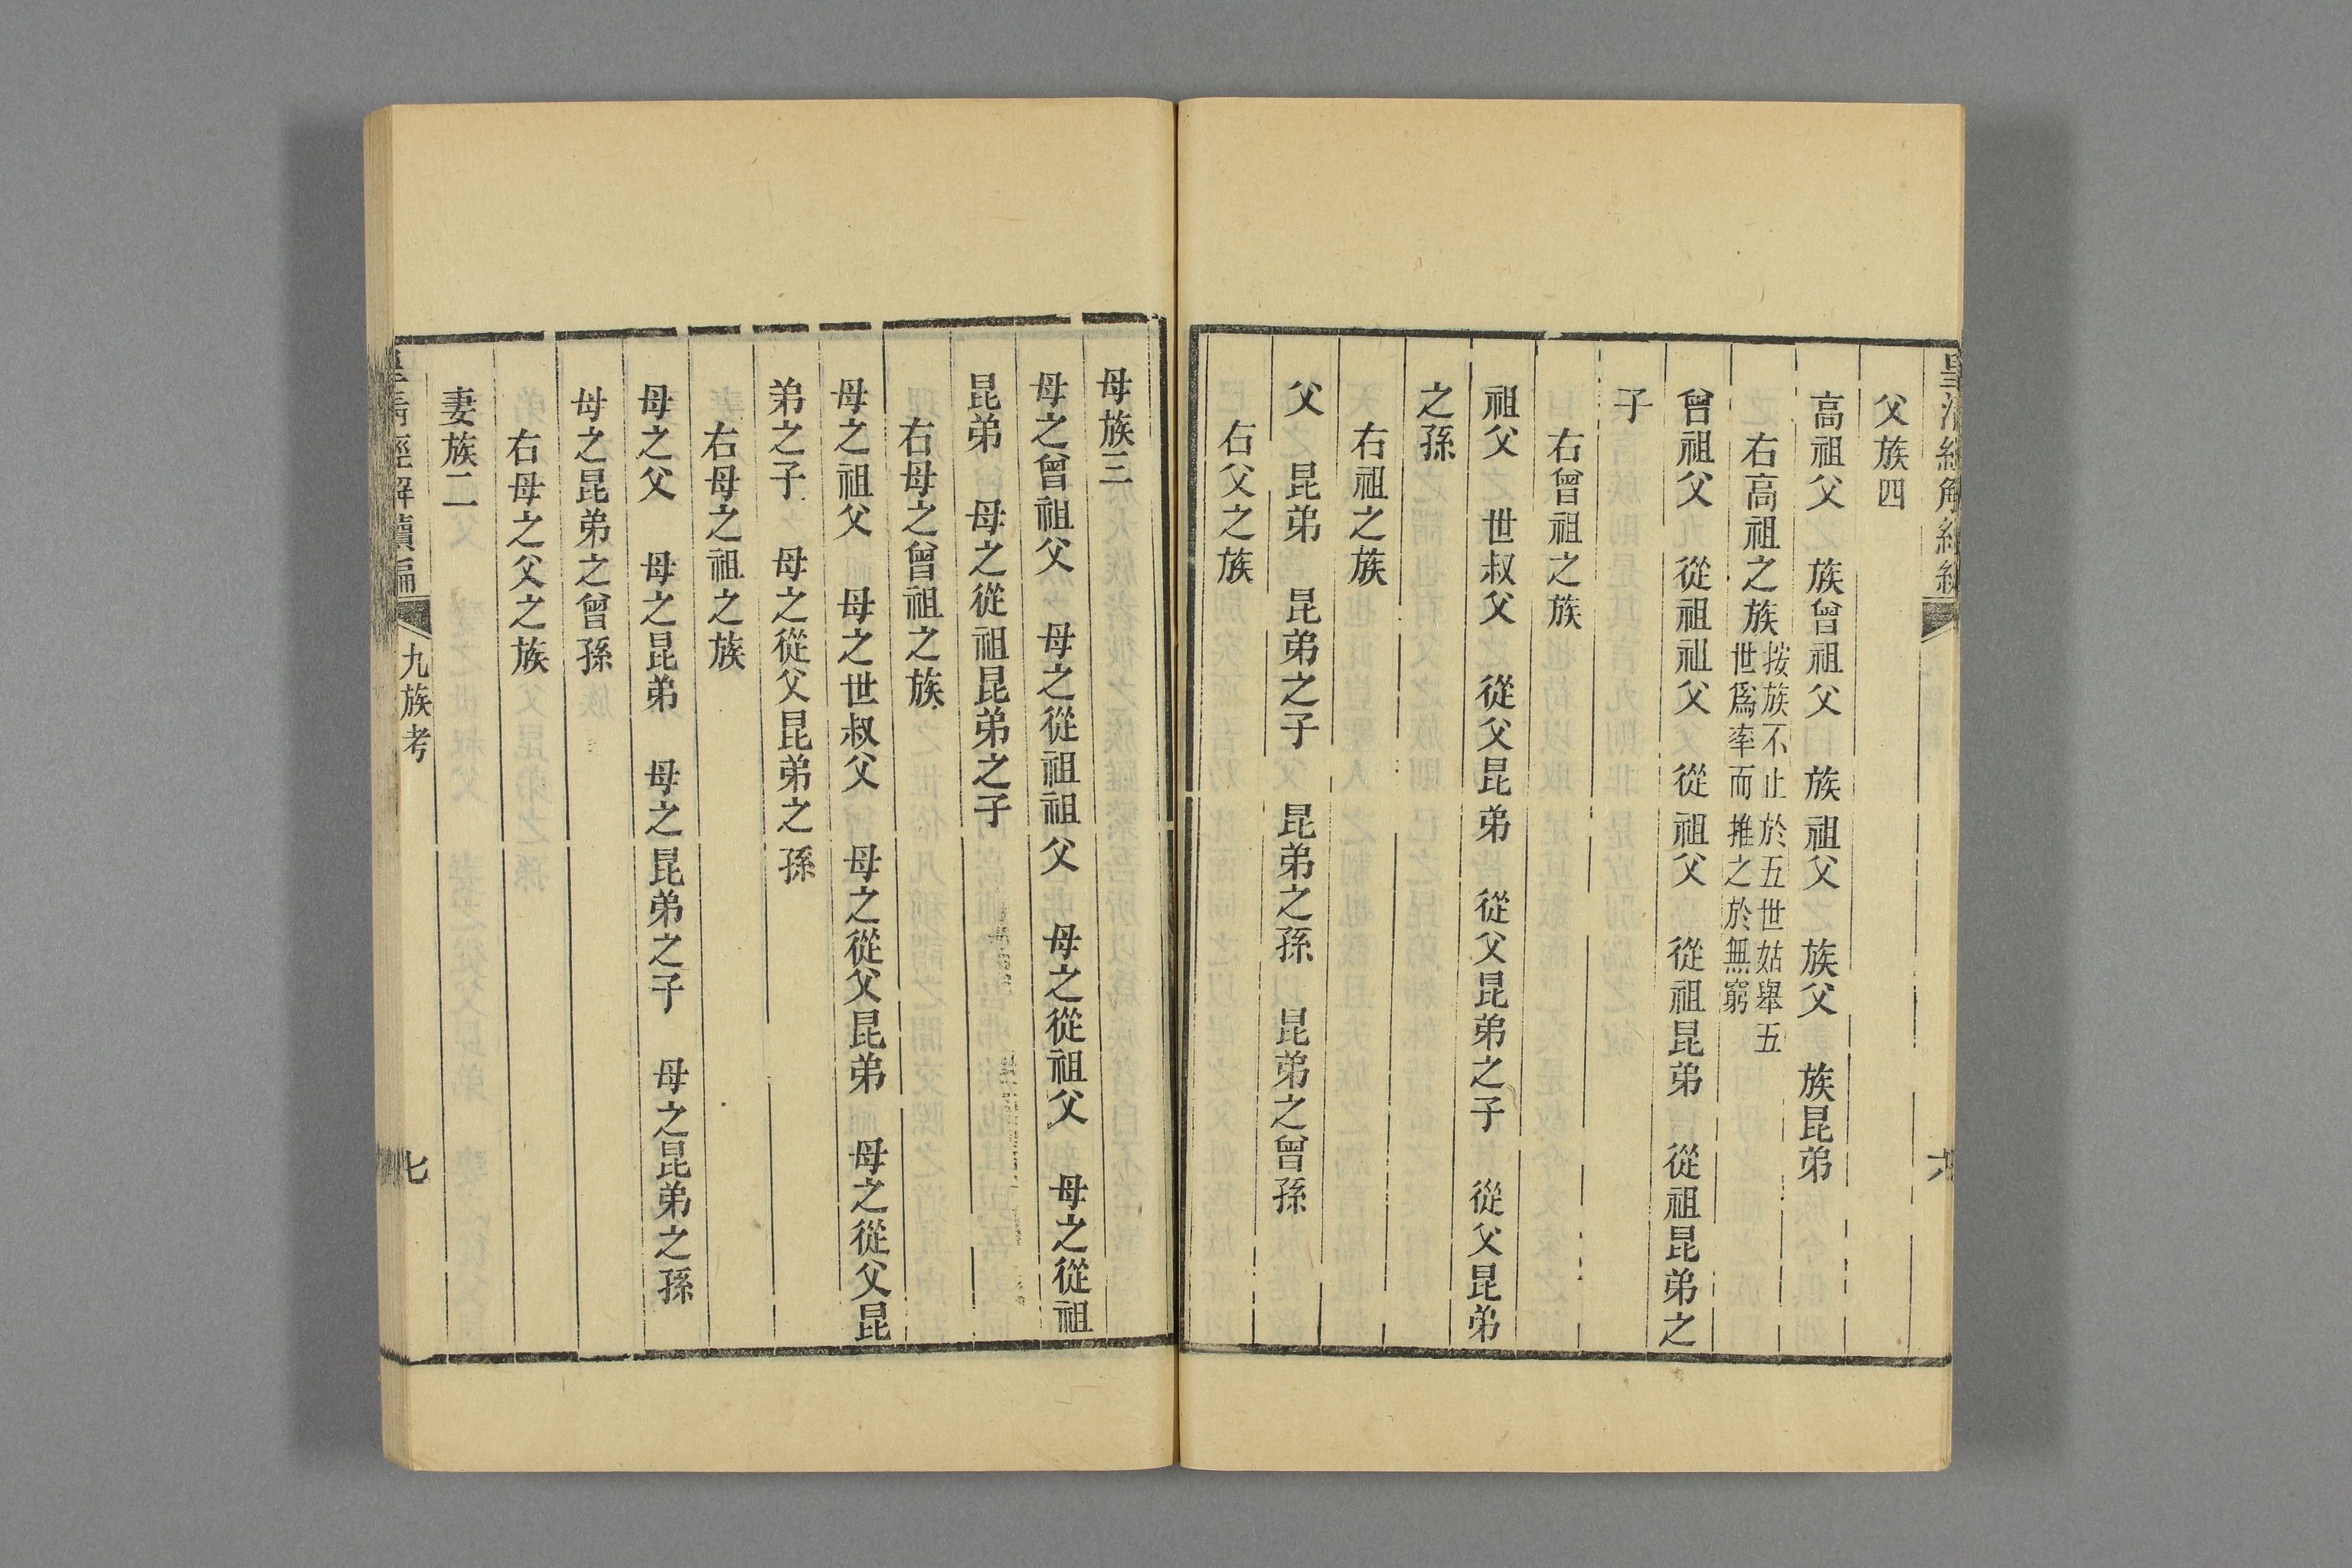 父族四
高祖父　族曾祖父　族祖父　族父　族昆弟
右高祖之族按族不止於五世姑舉五
世爲率而推之於無窮
曾祖父　從祖祖父　從祖父　從祖昆弟　從祖昆弟之
子
右曾祖之族
祖父　世叔父　從父昆弟　從父昆弟之子　從父昆弟
之孫
右祖之族
父　昆弟　昆弟之子　昆弟之孫　昆弟之曾孫
右父之族
母族三
母之曾祖父　母之從祖祖父　母之從祖父　母之從祖
昆弟　母之從祖昆弟之子
右母之曾祖之族
母之祖父　母之世叔父　母之從父昆弟　母之從父昆
弟之子　母之從父昆弟之孫
右母之祖之族
母之父　母之昆弟　母之昆弟之子　母之昆弟之孫
母之昆弟之曾孫
右母之父之族
妻族二
皇清經解續編　九族考　七